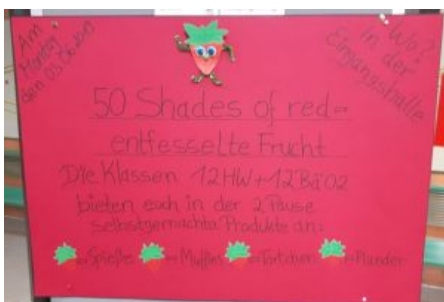 Am
Montag
den 03.
Wo?
in der
Eingangshalle
50 Shades of red-
entfesselte Frucht
Die Klassen 12HW+12Bä02
bieten euch in der 2 Pause
selbstgemachte Produkte an:
Spieße Muffins Törtchen Plunder